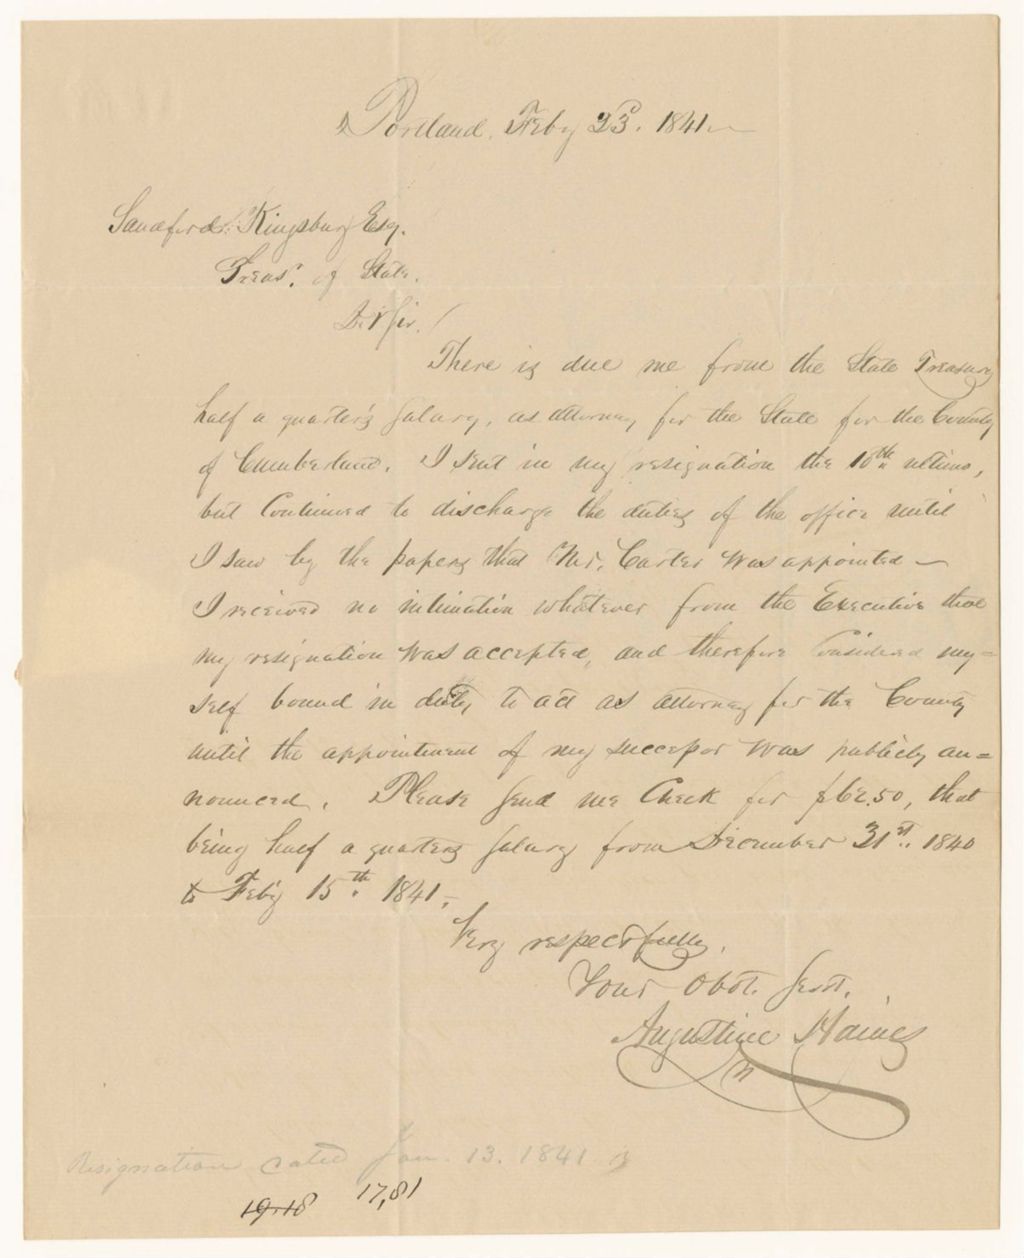 Portland, Feby 23d. 1841
Sandford Kingsbury Esq.
Treasr. of State.
Dr Sir!
There is due me from the State Treasury
half a quarter's salary, as attorney for the State for the County
of Cumberland. I sent in my resignation the 10th ultimo,
but Continued to discharge the duties of the office until
I saw by the papers that Mr. Carter was appointed —
I received no intimation whatever from the Executive that
my resignation was accepted, and therefore Considered my=
self bound in duty to act as attorney for the County
until the appointment of my successor was publicly an=
nounced. Please send me Check for $62.50, that
being half a quarters salary from December 31st. 1840
to Feby 15th. 1841.
Very respectfully,
Your Obdt. Servt.
Augustine Haines
Resignation dated Jan. 13. 1841
19.18 17,81